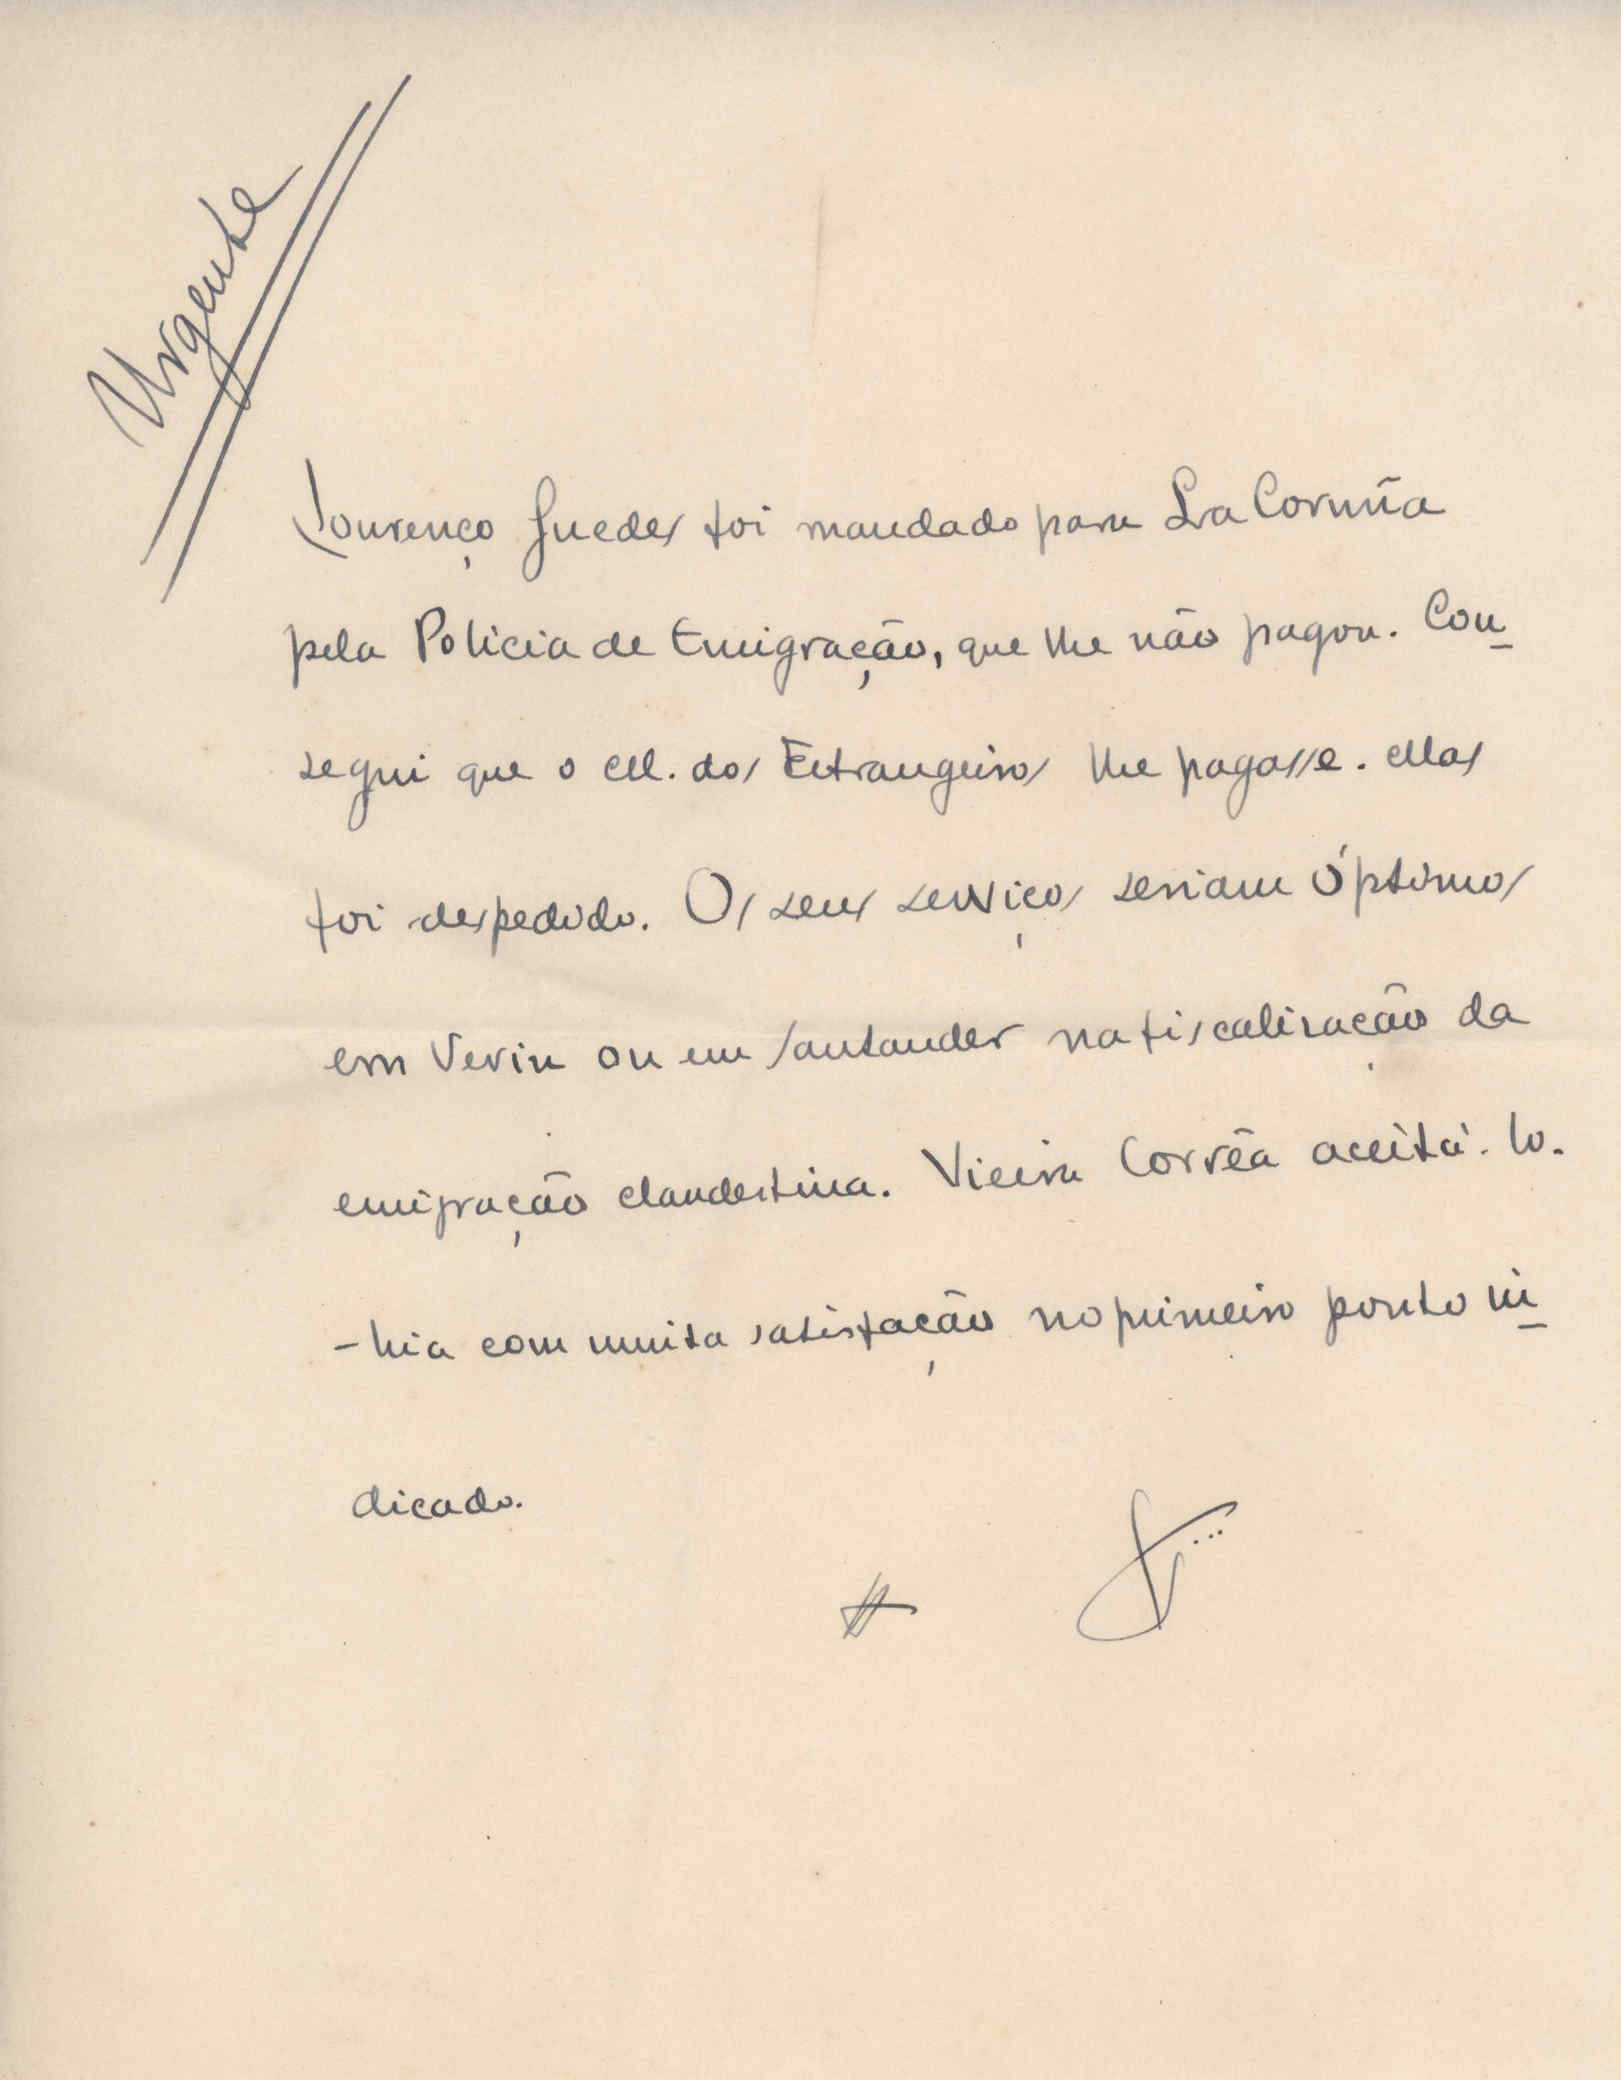 Urgente
Lourenço Guedes foi mandado para La Coruña
pela Policia de Emigração, que lhe não pagou. Con-
segui que o M. dos Estrangeiros lhe pagasse. Mas
foi despedido. Os seus serviços seriam óptimos
em Verin ou em Santander na fiscalisação da
emigração clandestina. Vieira Corrêa aceitá-lo-
-hia com muita satisfação no primeiro ponto in-
dicado.